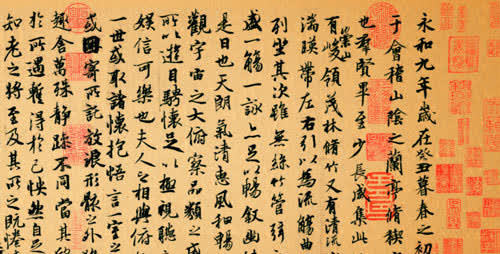 永和九年歲在癸丑暮春之初
于會稽山陰之蘭亭脩稧
也羣賢畢至少長咸集此
有崇山峻領茂林脩竹又有清流
湍暎帶左右引以為流觴曲
列坐其次雖無絲竹管弦
盛一觴一詠亦足以暢敘幽
是日也天朗氣清惠風和暢
觀宇宙之大俯察品類之
所以遊目騁懷足以極視聽
娛信可樂也夫人之相與俯
一世或取諸懷抱悟言一室之
或因寄所託放浪形骸之外
趣舍萬殊靜躁不同當其
於所遇蹔得於己怏然自足
知老之將至及其所之既惓